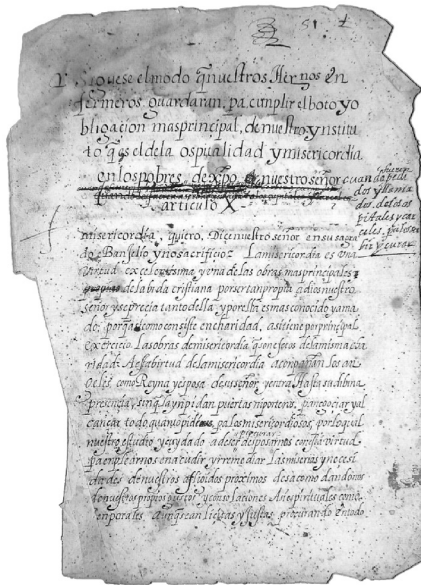 51
Siguese el modo q̃ nuestros Hernos en
fermeros guardaran, pa cumplir el boto y o
bligacion mas principal, de nuestro ynstitu
to q̃ es el de la ospitalidad y misericordia
con los pobres, de xpo nuestro señor cuanda
articulo X
dos y llama
dos, de los os
pitales y car
celes, pa los ser
bir y curar
misericordia, quiero, Dice nuestro señor en su sagra
do Banjelio y no sacrificio. La misericordia es una
virtud excelentissima, y una de las obras mas principales
de la bida cristiana por ser tan propia a dios nuestro
señor y se precia tanto della, y por ella es mas conocido y ama
do; porq̃ asi como consiste en charidad, asi tiene por principal
exercicio las obras de misericordia q̃ son efetos de la misma cha
ridad. A esta virtud de la misericordia aconpañan los an
Jeles como Reyna y esposa de su señor, y entra Hasta su dibina
presencia, sin q̃ la ynpidan puertas ni porteros, pa negociar y al
cançar todo quanto pide pa los misericordiosos, por lo qual
nuestro estudio y cuydado a de ser desponsarnos con esta virtud
pa enplearnos en acudir y rremediar las miserias y necesi
dades de nuestros aflijidos proximos desacomodandonos
de nuestros propios gustos y consolaciones Ansi espirituales como
tenporales aunq̃ sean licitas y justas, procurando en todo